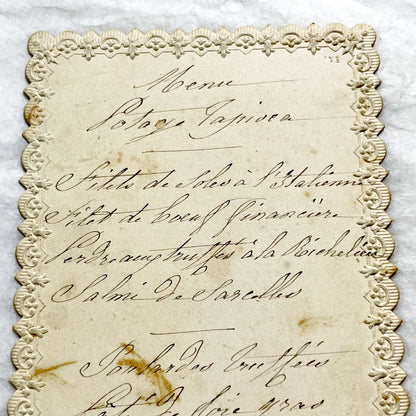 Menu
Potage Tapioca
Filets de Soles à l'Italienne
Filet de boeuf financière
Perdreaux truffés à la Richelieu
Salmi de Sarcelles
Poulardes truffées
Pâté de foie gras